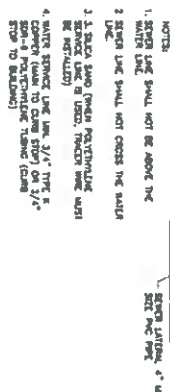 NOTES:
1. SEWER LINE SHALL NOT BE ABOVE THE
WATER LINE.
2 SEWER LINE SHALL NOT CROSS THE WATER
LINE.
3. SILICA SAND (WHEN POLYETHYLENE
SERVICE LINE IS USED, TRACER WIRE MUST
BE INSTALLED)
4. WATER SERVICE LINE MIN. 3/4" TYPE K
COPPER (MAIN TO CURB STOP) OR 3/4"
SDR-9 POLYETHYLENE TUBING (CURB
STOP TO BUILDING)
SEWER LATERAL 4"
SIZE PVC PIPE